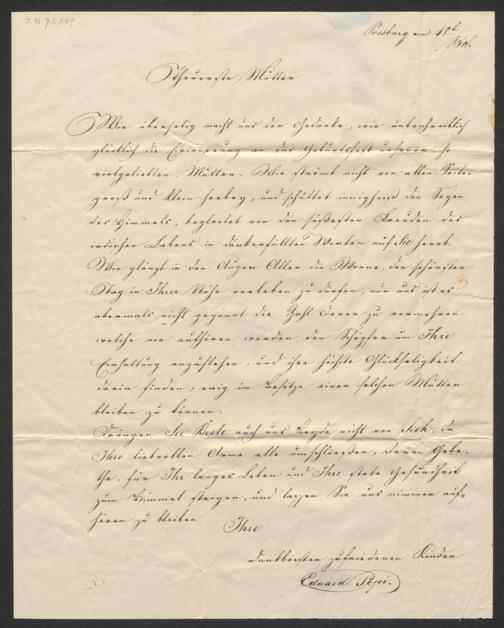 I.N 72509
Presburg am 18t
Okt.
Theuerste Mutter
Wie überselig macht uns der Gedanke, wie unbeschreiblich
glücklich die Erinnerung an das Geburtsfest unserer so
vielgeliebten Mutter. Wie strömt nicht von allen Seiten
groß und klein herbey, und schüttet innigheiß den Segen
des Himmels, begleitet von den süßesten Freuden des
irdischen Lebens in dankerfüllten Worten auf Sie herab.
Wie glänzt in den Augen Aller die Wonne, den schönsten
Tag in Ihrer Nähe verleben zu dürfen, nur uns ist es
abermals nicht gegönnt die Zahl derer zu vermehren
welche nie aufhören werden den Schöpfer um Ihre
Erhaltung anzuflehen, und ihre höchste Glückseligkeit
darin finden, ewig im Besitze einer solchen Mutter
bleiben zu können.
Drängen Sie Beste auch uns Beyde nicht von Sich, da
Ihre liebevollen Arme alle umschließen, deren Gebe-
the, für Ihr langes Leben und Ihre stete Gesundheit
zum Himmel steigen, und lassen Sie uns nimmer auf-
hören zu bleiben
Ihre
dankbarsten zufriedenen Kinder
Eduard Pepi.